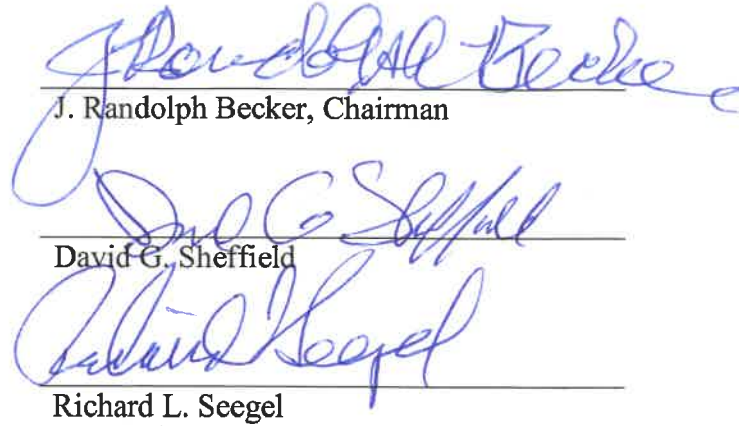 J Randolph Becker
J. Randolph Becker, Chairman
David G Sheffield
David G. Sheffield
Richard L Seegel
Richard L. Seegel